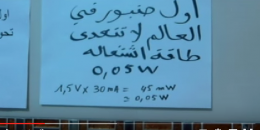 أول صنبور في
العالم لا تتعدى
طاقة اشتغاله
0,05W
1,5V x 30mA = 45 mW
= 0,05W